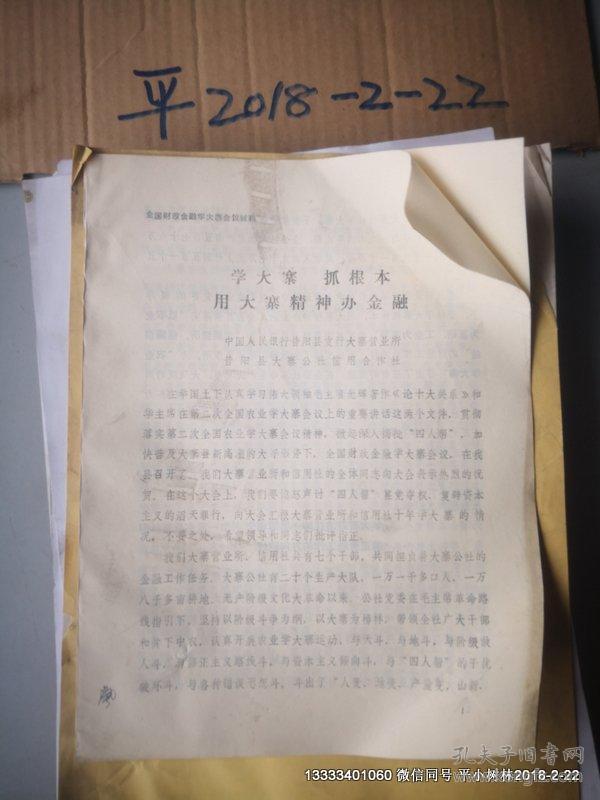 平2018-2-22
全国财政金融学大寨会议材料
学大寨 抓根本
用大寨精神办金融
中国人民银行昔阳县支行大寨营业所
昔阳县大寨公社信用合作社
在举国上下认真学习伟大领袖毛主席光辉著作《论十大关系》和
华主席在第二次全国农业学大寨会议上的重要讲话这两个文件，贯彻
落实第二次全国农业学大寨会议精神，掀起深入揭批“四人帮”，加
快普及大寨县新高潮的大好形势下，全国财政金融学大寨会议，在我
县召开了。我们大寨营业所和信用社的全体同志向大会表示热烈的祝
贺。在这个大会上，我们要愤怒声讨“四人帮”篡党夺权、复辟资本
主义的滔天罪行，向大会汇报大寨营业所和信用社十年学大寨的情
况，不妥之处，希望领导和同志们批评指正。
我们大寨营业所、信用社共有七个干部，共同担负着大寨公社的
金融工作任务。大寨公社有二十个生产大队，一万一千多口人，一万
八千多亩耕地。无产阶级文化大革命以来，公社党委在毛主席革命路
线指引下，坚持以阶级斗争为纲，以大寨为榜样，带领全社广大干部
和贫下中农，认真开展农业学大寨运动，与天斗、与地斗，与阶级敌
人斗，与修正主义路线斗，与资本主义倾向斗，与“四人帮”的干扰
破坏斗，与各种错误思想斗，斗出了“人变、地变、产量变，山河、
1
孔夫子旧书网
13333401060 微信同号 平小树林2018-2-22